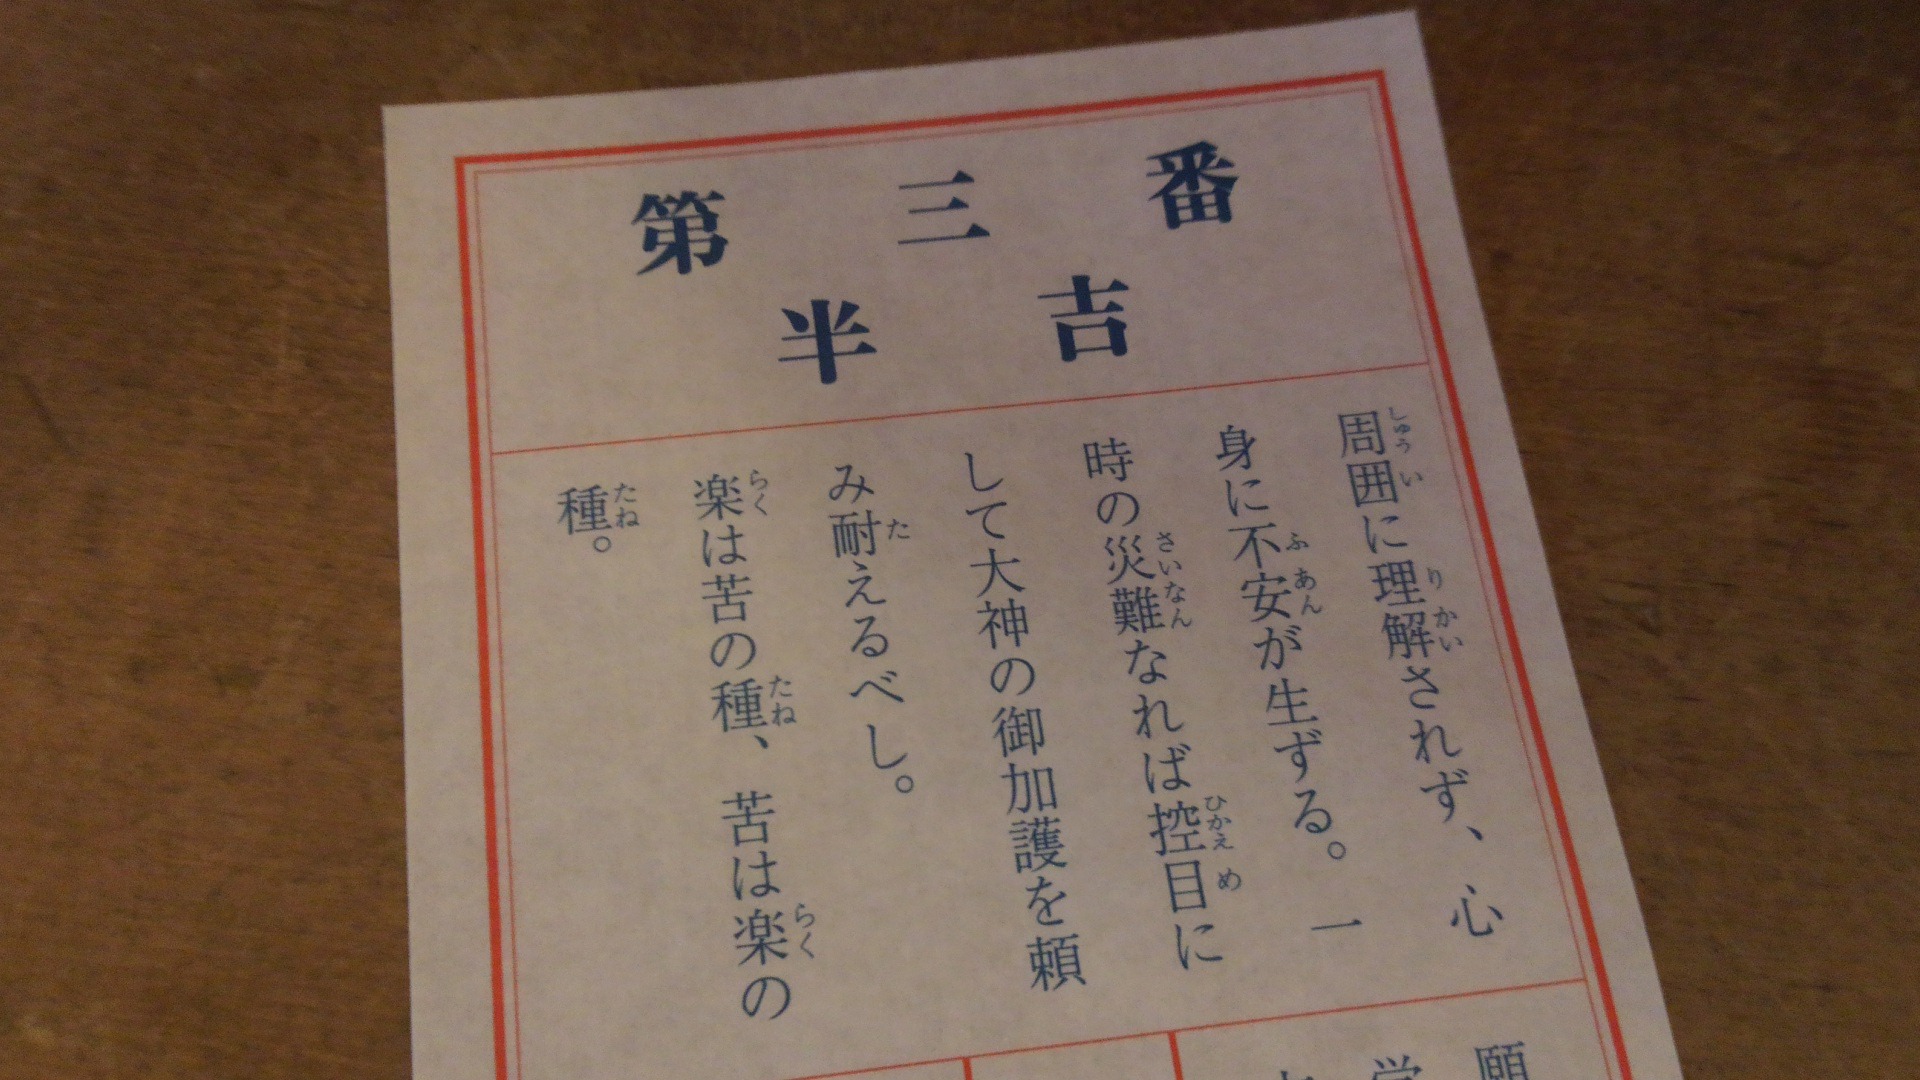 第三番
半吉
周囲に理解されず、心
身に不安が生ずる。一
時の災難なれば控目に
して大神の御加護を頼
み耐えるべし。
楽は苦の種、苦は楽の
種。
願
学